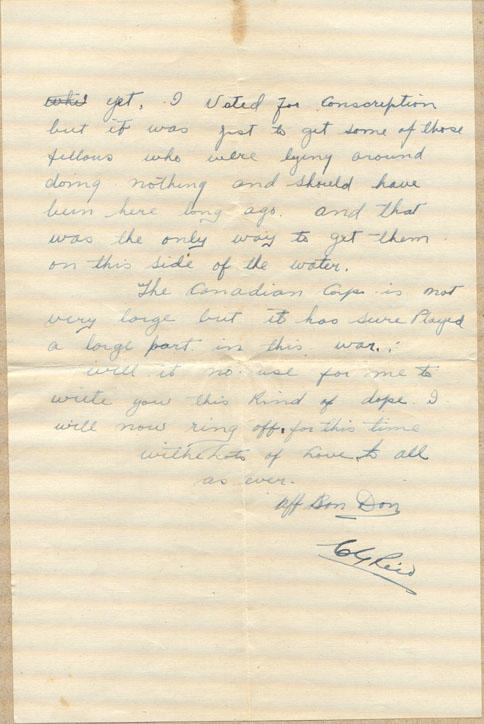 yet, I Voted for Conscription
but it was just to get some of those
fellows who were lying around
doing nothing and should have
been here long ago. and that
was the only way to get them
on this side of the water.
The Canadian Corps is not
very large but it has sure Played
a large part in this war.
well it no use for me to
write you this Kind of dope. I
will now ring off, for this time
with Lots of Love, to all
as ever.
Aff Don
Reid